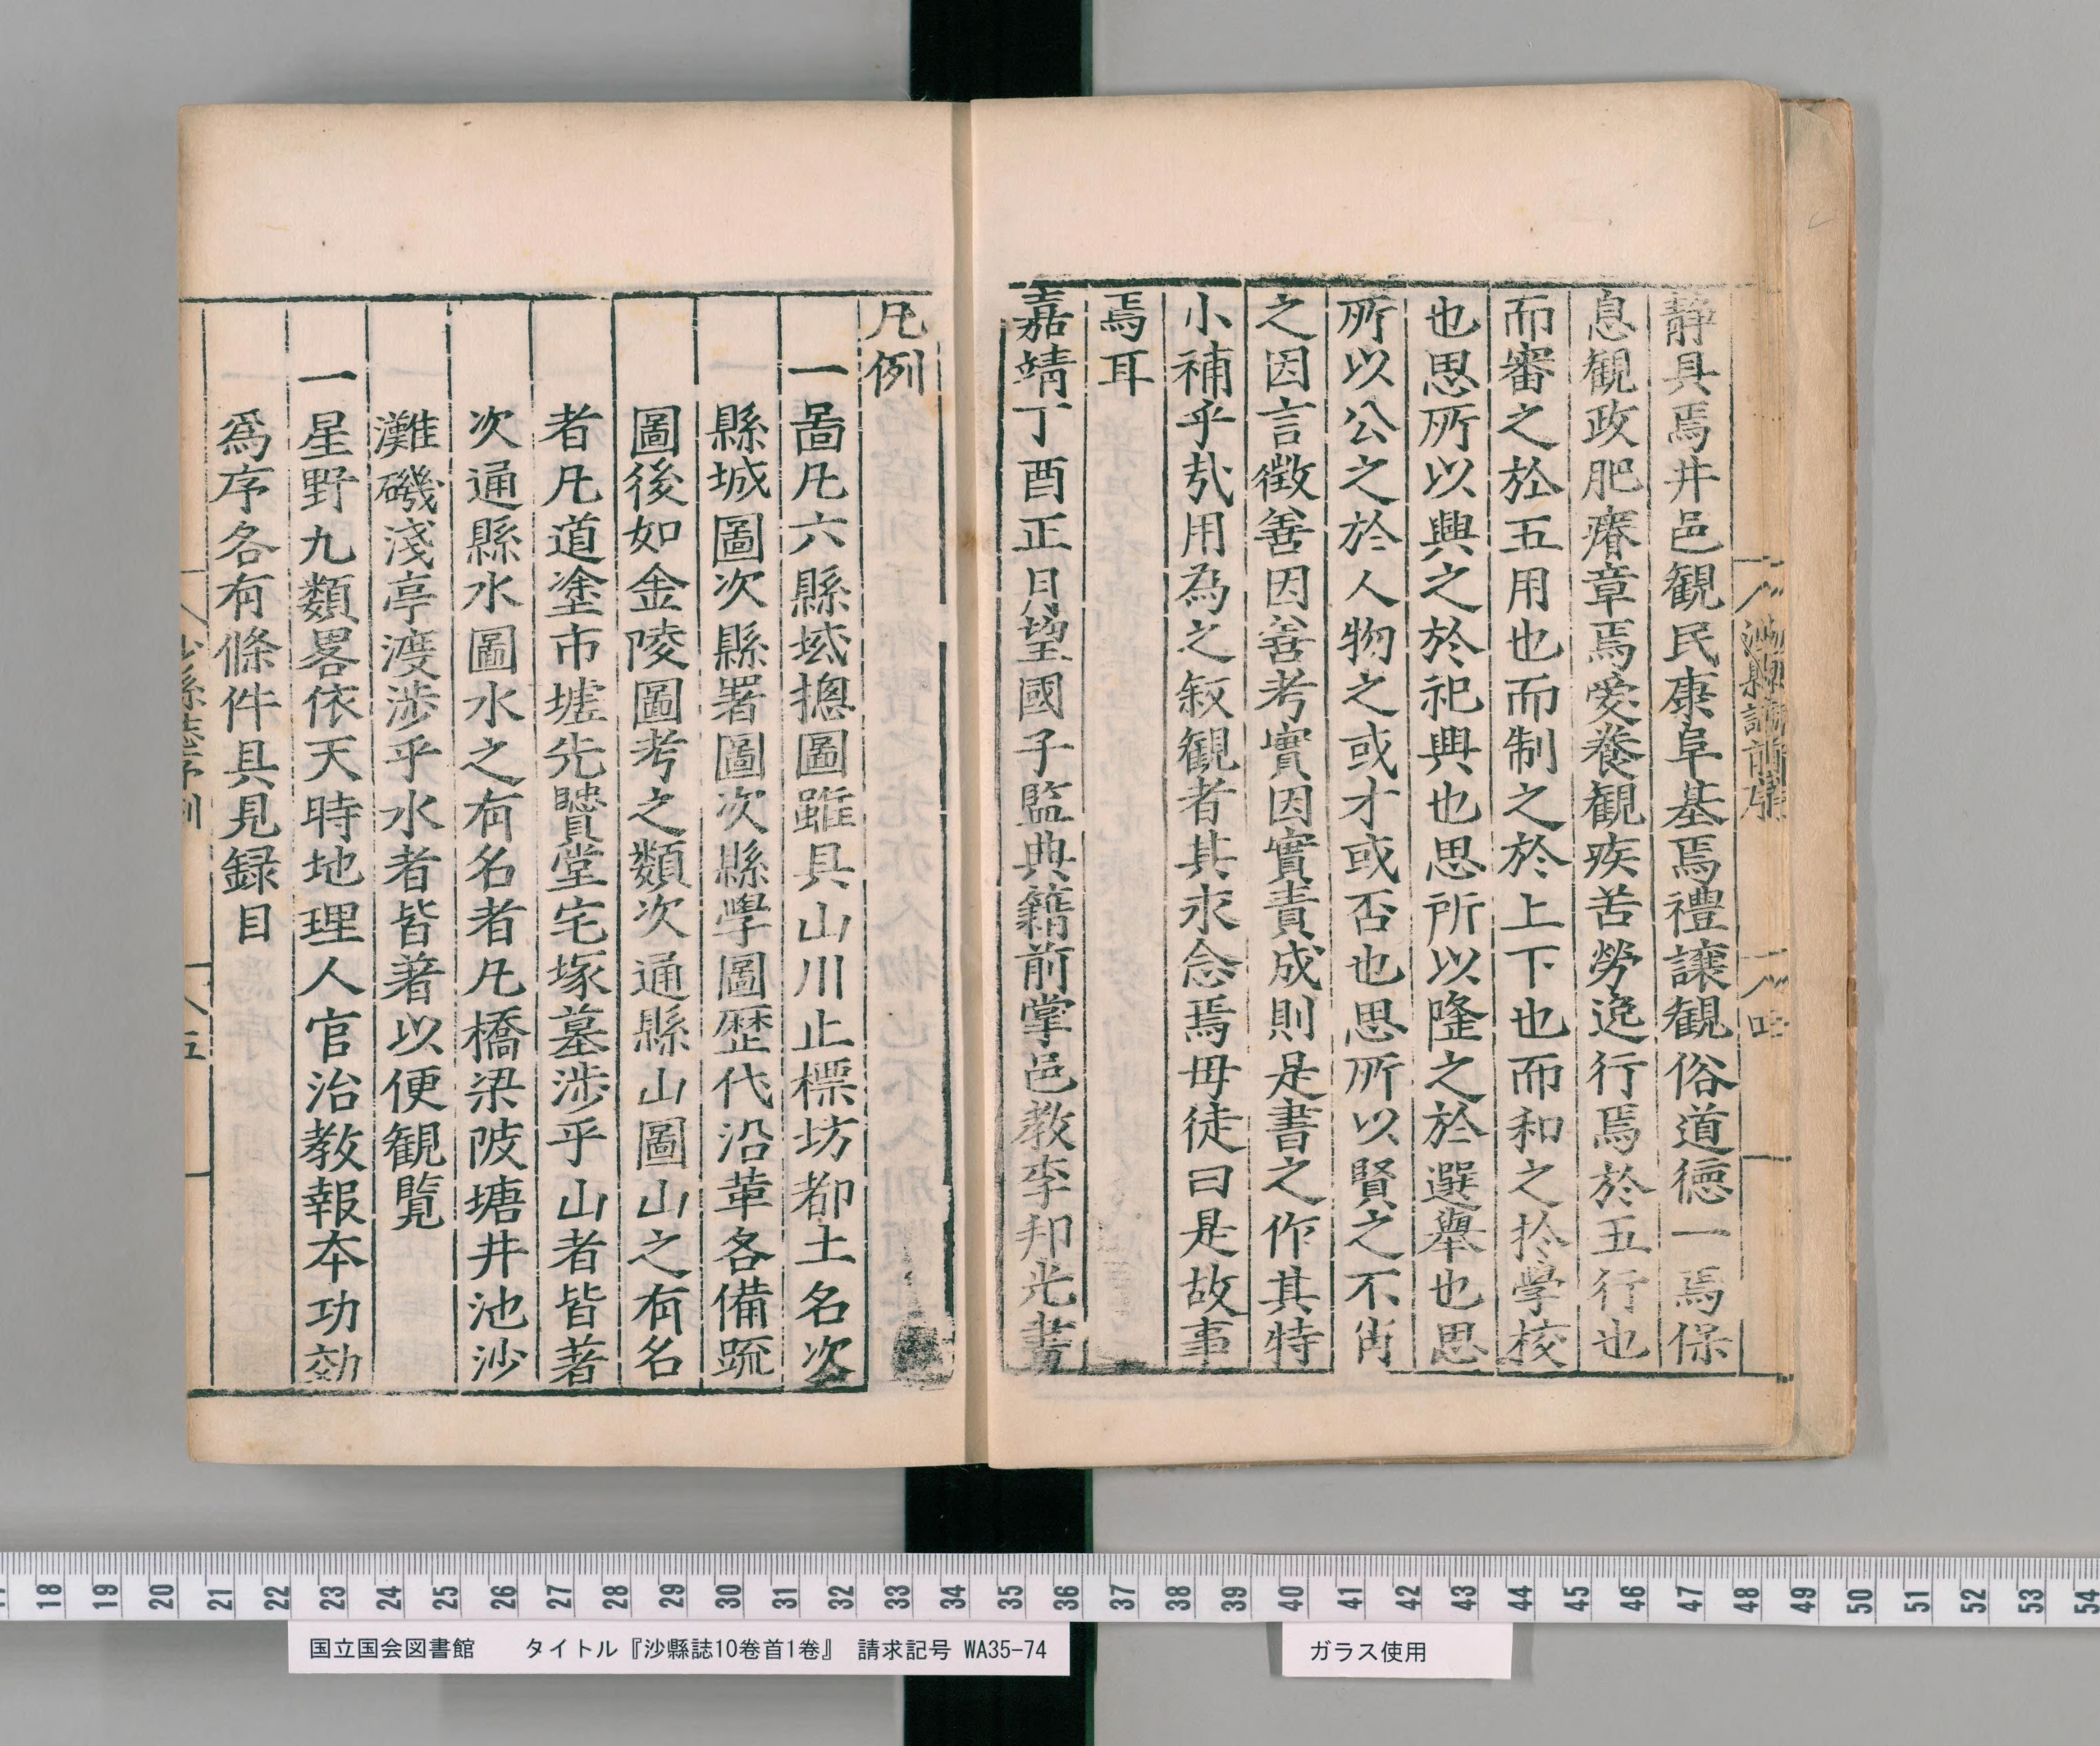 靜具焉井邑観民康阜基焉禮譲観俗道德一焉保
息観政肥瘠章焉愛養観疾苦勞逸行焉於五行也
而審之於五用也而制之於上下也而和之於學校
也思所以興之於祀典也思所以隆之於選舉也思
所以公之於人物之或才或否也思所以賢之不肖
之因言徵善因善考實因實責成則是書之作其特
小補乎㢤用為之叙観者其永念焉毋徒曰是故事
焉耳
嘉靖丁酉正月望國子監典籍前掌邑教李邦光書
沙縣誌前序
四
凡例
一啚凡六縣域揔圖雖具山川止標坊都土名次
縣城圖次縣署圖次縣學圖歴代沿革各備䟽
圖後如金陵圖考之類次通縣山圖山之有名
者凡道塗市墟先賢堂宅塚墓涉乎山者皆著
次通縣水圖水之有名者凡橋梁陂塘井池沙
灘磯淺亭渡涉乎水者皆著以便観覽
一星野九類畧依天時地理人官治教報本功効
爲序各有條件具見録目
沙縣誌序例
五
国立国会図書館 タイトル『沙縣誌10巻首1巻』 請求記号 WA35-74
ガラス使用
17 18 19 20 21 22 23 24 25 26 27 28 29 30 31 32 33 34 35 36 37 38 39 40 41 42 43 44 45 46 47 48 49 50 51 52 53 54